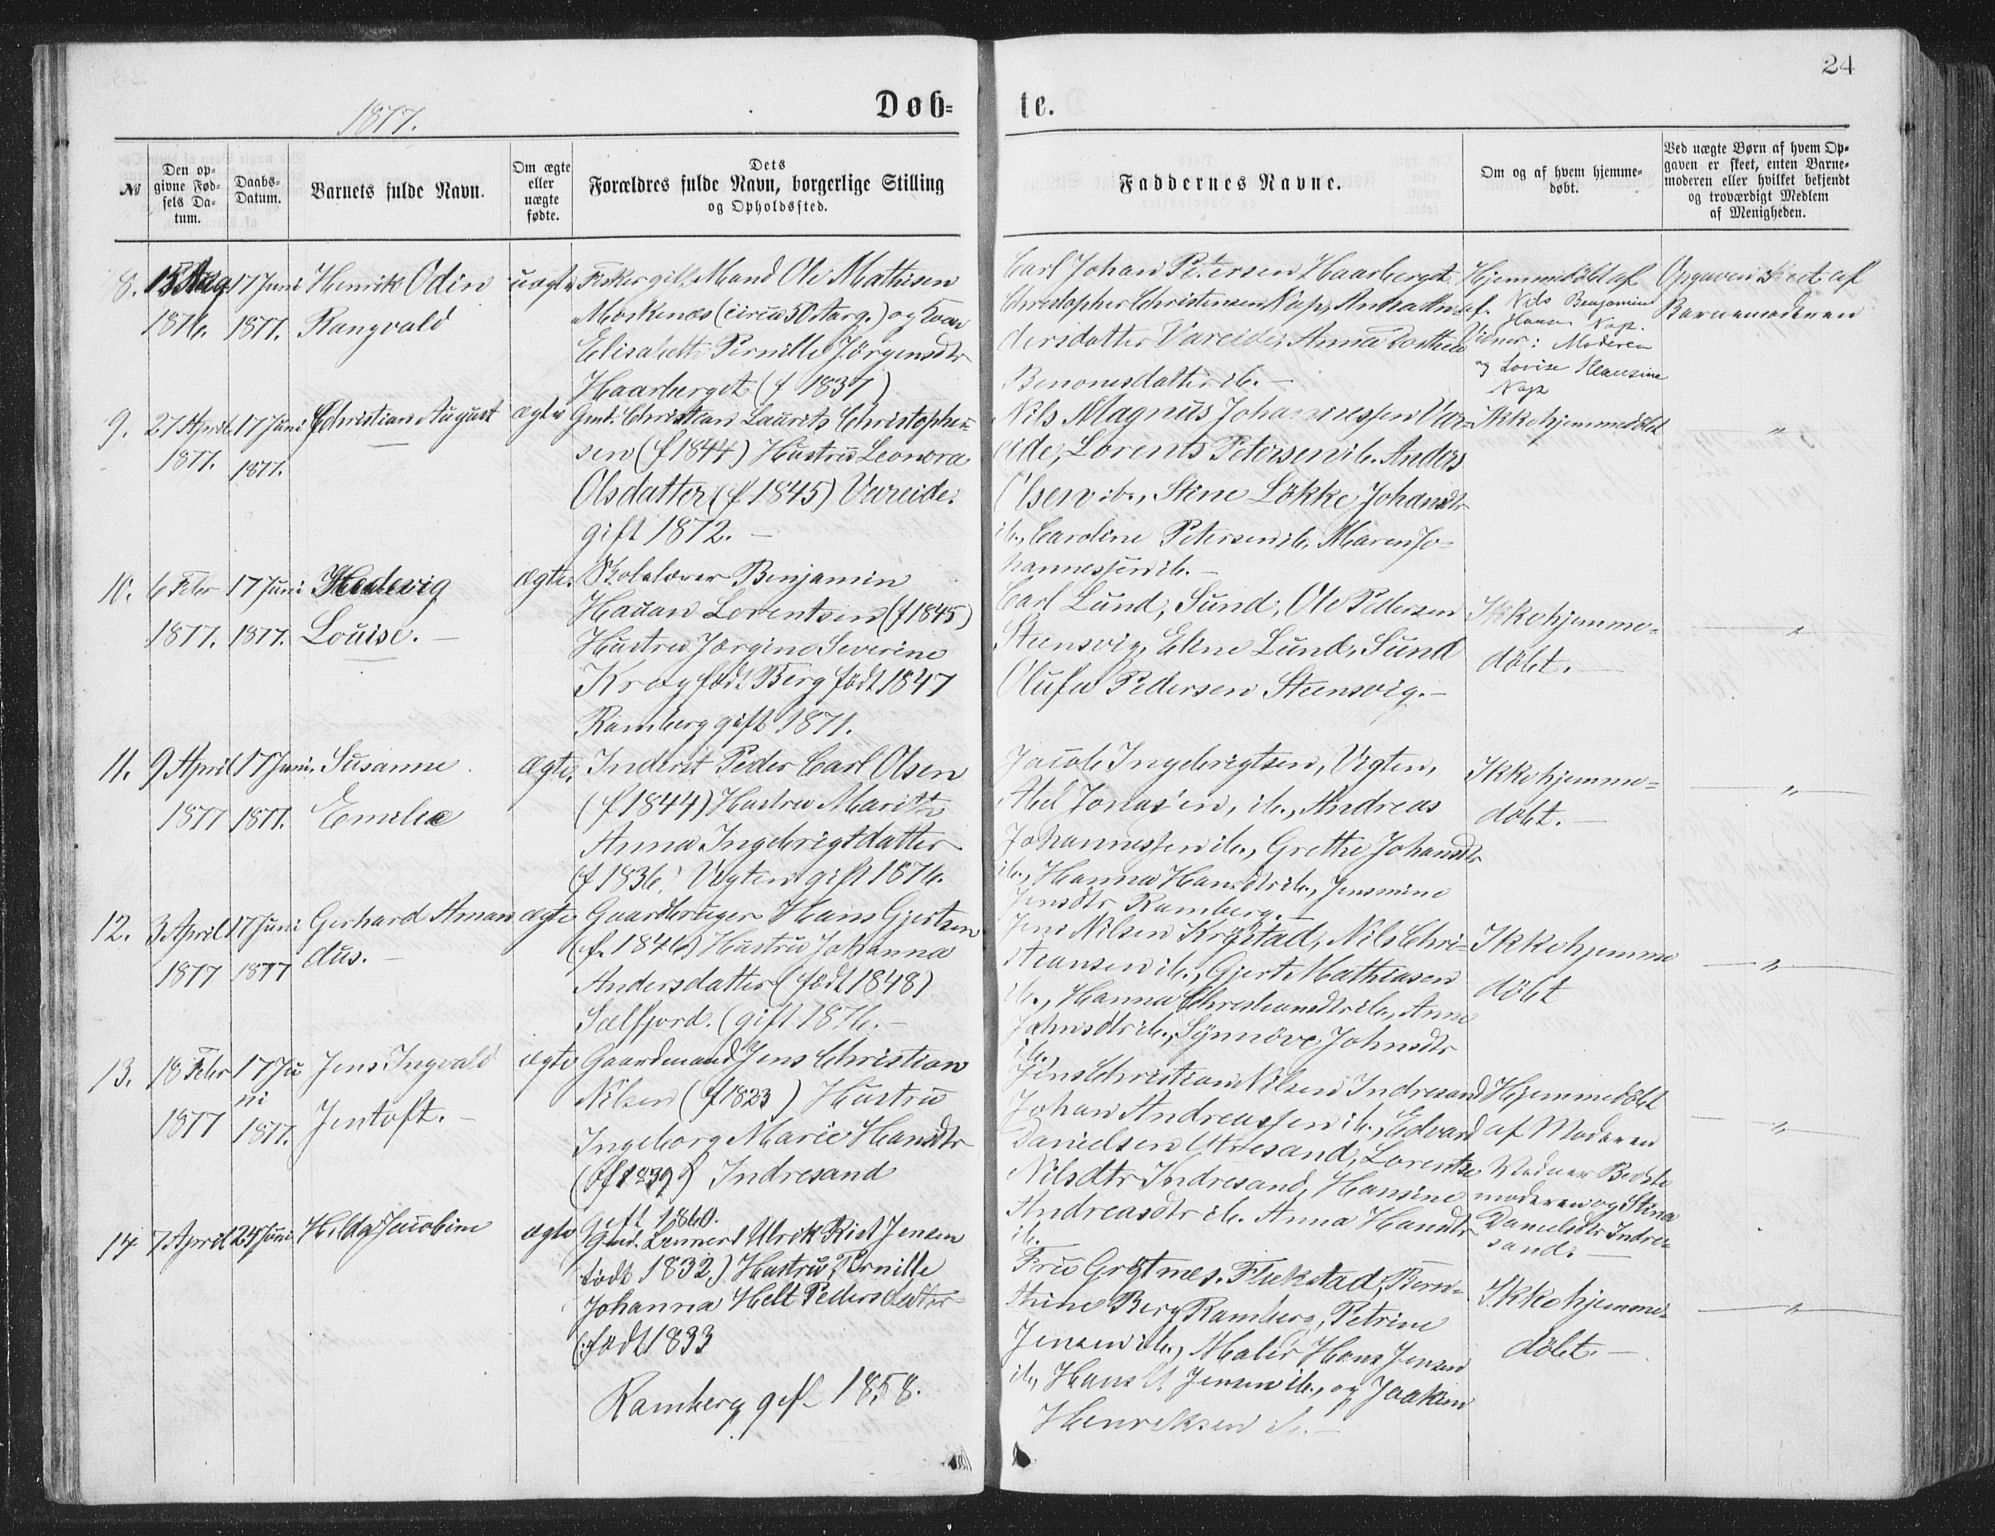 24
1877.
Døb-
te.
№
Den op-
givne Fød-
sels Da-
tum.
Daabs-
Datum.
Barnets fulde Navn.
Om ægte
eller
uægte
fødte.
Dets
Forældres fulde Navn, borgerlige Stilling
og Opholdssted.
Faddernes Navne.
Om og af hvem hjemme-
døbt.
Ved uægte Børn af hvem Op-
gaven er skeet, enten Barne-
moderen eller hvilket bekjendt
og troværdigt Medlem
af Menigheden.
8.
15 Aug
1876.
17 Juni
1877.
Henrik Odin
Rangvald
uægte
Fisker gift Mand Ole Mathisen
Moskenæs (circa 50 Aar g.) og
Elisabeth Pernille Jørgensdtr
Haarberget (f 1837)
Carl Johan Petersen Haarberget
Christopher Christensen Nap, Andrea An-
dersdatter Vareide, Anna Dorthea
Benonisdatter ib. –
Hjemmedøbt af
Nils Benjamin
Hansen Nap.
Vidner: Moderen
og Lovise Hansine
Nap
Opgaven skeet af
Barnemoderen
9.
27 April
1877.
17 Juni
1877.
Christian August
ægte
Gmd. Christian Laurits Christopher-
sen (f 1844) Hustru Leonora
Olsdatter (f 1845) Vareide.
gift 1872. –
Nils Magnus Johannessen Var-
eide, Lorents Petersen ib. Anders
Olsen ib., Stine Løkke Johansdtr
ib., Caroline Petersen ib., Maren Jo-
hannessen ib. –
Ikke hjemmedøbt
"
10.
6 Febr
1877.
17 Juni
1877.
Hedevig
Louise. –
ægte.
Skolelærer Benjamin
Hauan Lorentsen (f 1845)
Hustru Jørgine Severine
Krog født Berg født 1847
Ramberg gift 1871.
Carl Lund, Sund, Ole Pedersen
Steensvig, Elene Lund, Sund
Olufa Pedersen Steensvig. –
Ikke hjemme-
døbt. –
"
11.
9 April
1877
17 Juni
1877.
Susanne
Emilie
ægte.
Inderst Peder Carl Olsen
(f 1844) Hustru Marith
Anna Ingebrigtdatter
(f 1836. Vigten gift 1876.
Jacob Ingebrigtsen, Vigten,
Abel Jonassen, ib., Andreas
Johannessen ib., Grethe Johansdtr
ib., Hanna Hansdtr ib., Jensmine
Jensdtr Ramberg. –
Ikke hjemme-
døbt. –
"
12.
3 April
1877
17 Juni
1877
Gerhard Aman
dus. –
ægte
Gaardbruger Hans Gjertsen
(f. 1846) Hustru Johanna
Andersdatter (født 1848)
Selfjord. (gift 1876. –
Jens Nilsen Krystad, Nils Chri-
stiansen ib., Gjert Mathiasen
ib., Hanna Christiansdtr ib., Anne
Johnsdtr ib., Synnøve Johnsdtr
ib.
Ikke hjemme
døbt
"
13.
18 Febr
1877
17 Ju
ni
1877.
Jens Ingvald
Jentoft. –
ægte
Gaardmand Jens Christian
Nilsen (f 1823) Hustru
Ingeborg Marie Hansdtr
(f 1839) Indresand
gift 1860.
Jens Christian Nilsen Indresand
Johan Andreassen ib., Edvard
Danielsen Ytresand, Lorentse
Nilsdtr Indresand, Hansine
Andreasdtr ib. Anna Hansdtr
ib.
Hjemmedøbt
af Moderen
Vidner Bedste
moderen og Stina
Danielsdtr Indre-
sand. –
"
14.
7 April
24 Juni
Hilda Jacobine
ægte
Gmd. Lennert Ulrik Rist Jensen
født 1832) Hustru Pernille
Johanna Helt Pedersdatter
(født 1833
Ramberg gift 1858.
Fru Grytnes. Flakstad, Bern-
thine Berg Ramberg, Petrine
Jensen ib., Maler Hans Jensen
ib., Hans U. Jensen ib., og Joakim
Henriksen ib. –
Ikke hjemme-
døbt. –
"